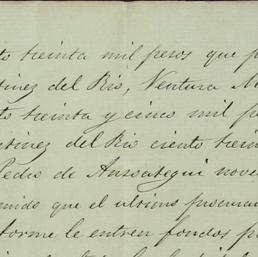 to treinta mil pesos que p
tinez del Rio, Ventura M
to treinta y cinco mil p
rtinez del Rio ciento trein
Pedro de Ansoategui nove
nido que el ultimo procura
forme le entren fondos p